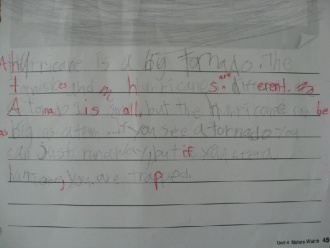 A hurricane is a big tornado. The
tornadoes and hurricanes are different.
A tornado is small, but the hurricane can be
as big as a town. If you see a tornado you
can just run away, but if you see a
hurricane, you are trapped.
Unit 6 Nature Watch 45